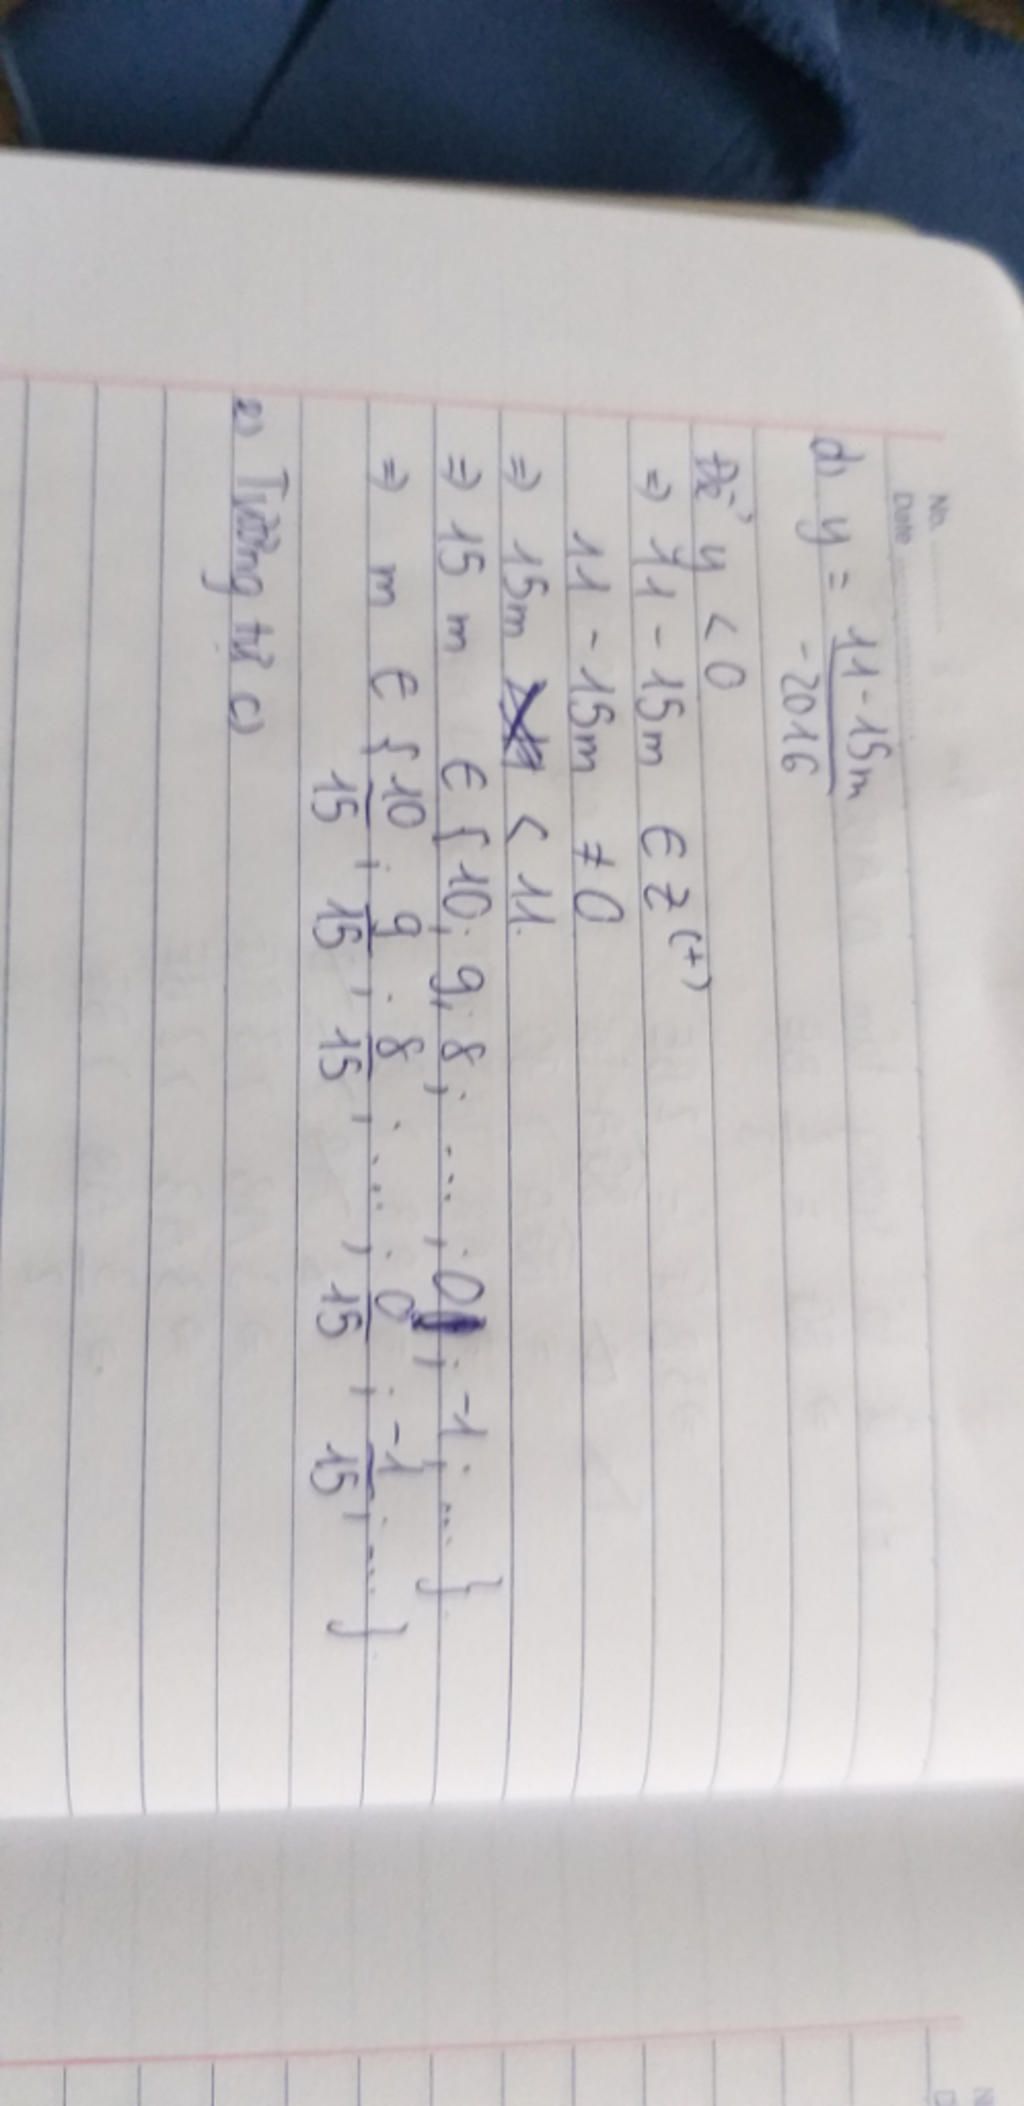 No.
Date
d) y = 11 - 15m / -2016
Để y < 0
=> 11 - 15m ∈ Z (+)
11 - 15m ≠ 0
=> 15m < 11.
=> 15 m ∈ { 10; 9; 8; ...; 0; -1; ... }
=> m ∈ { 10/15; 9/15; 8/15; ...; 0/15; -1/15; ... }
e) Tương tự c)